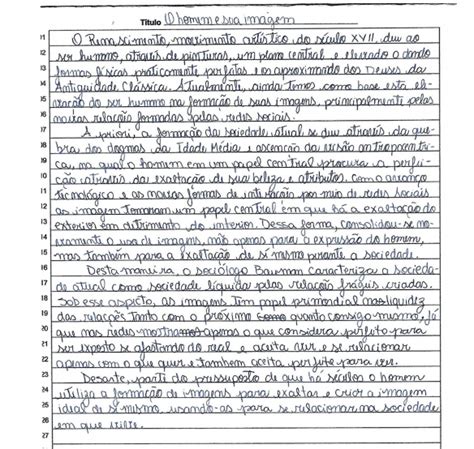 Título O homem e sua imagem
11 O Renascimento, movimento artístico do século XVII, deu ao
12 ser humano, através de pinturas, um plano central e elevado o dando
13 formas físicas praticamente perfeitas e os aproximando dos Deuses da
14 Antiguidade Clássica. Atualmente, ainda temos como base esta ele-
15 vação do ser humano na formação de suas imagens, principalmente pelas
16 novas relação formadas pelas redes sociais.
17 A priori, a formação da sociedade atual se deu através da que-
18 bra dos dogmas da Idade Média e ascenção da versão antropocêntri-
19 ca, na qual o homem em um papel central procura a perfei-
10 ção através da exaltação de sua beleza e atributos. Com o avanço
11 tecnológico e as novas formas de interação por meio de redes sociais
12 as imagem tomaram um papel central em que há a exaltação do
13 exterior em detrimento do interior. Dessa forma, consolidou-se no-
14 vamente o uso de imagens, não apenas para a expressão do homem,
15 mas também para a exaltação de si mesmo perante a sociedade.
16 Desta maneira, o sociólogo Bauman caracteriza a socieda-
17 de atual como sociedade líquida pelas relação frágeis criadas.
18 Sob esse aspecto, as imagens têm papel primordial nas liquidez
19 das relações tanto com o próximo quanto consigo mesmo, já
20 que nas redes mostram apenas o que considera perfeito para
21 ser exposto se afastando do real e aceita ver e se relacionar
22 apenas com o que quer e também aceita perfeito para ver.
23 Desante, parti do pressuposto de que há séculos o homem
24 utiliza a formação de imagens para exaltar e criar a imagem
25 ideal de si mesmo, usando-as para se relacionar na sociedade
26 em que vive.
27